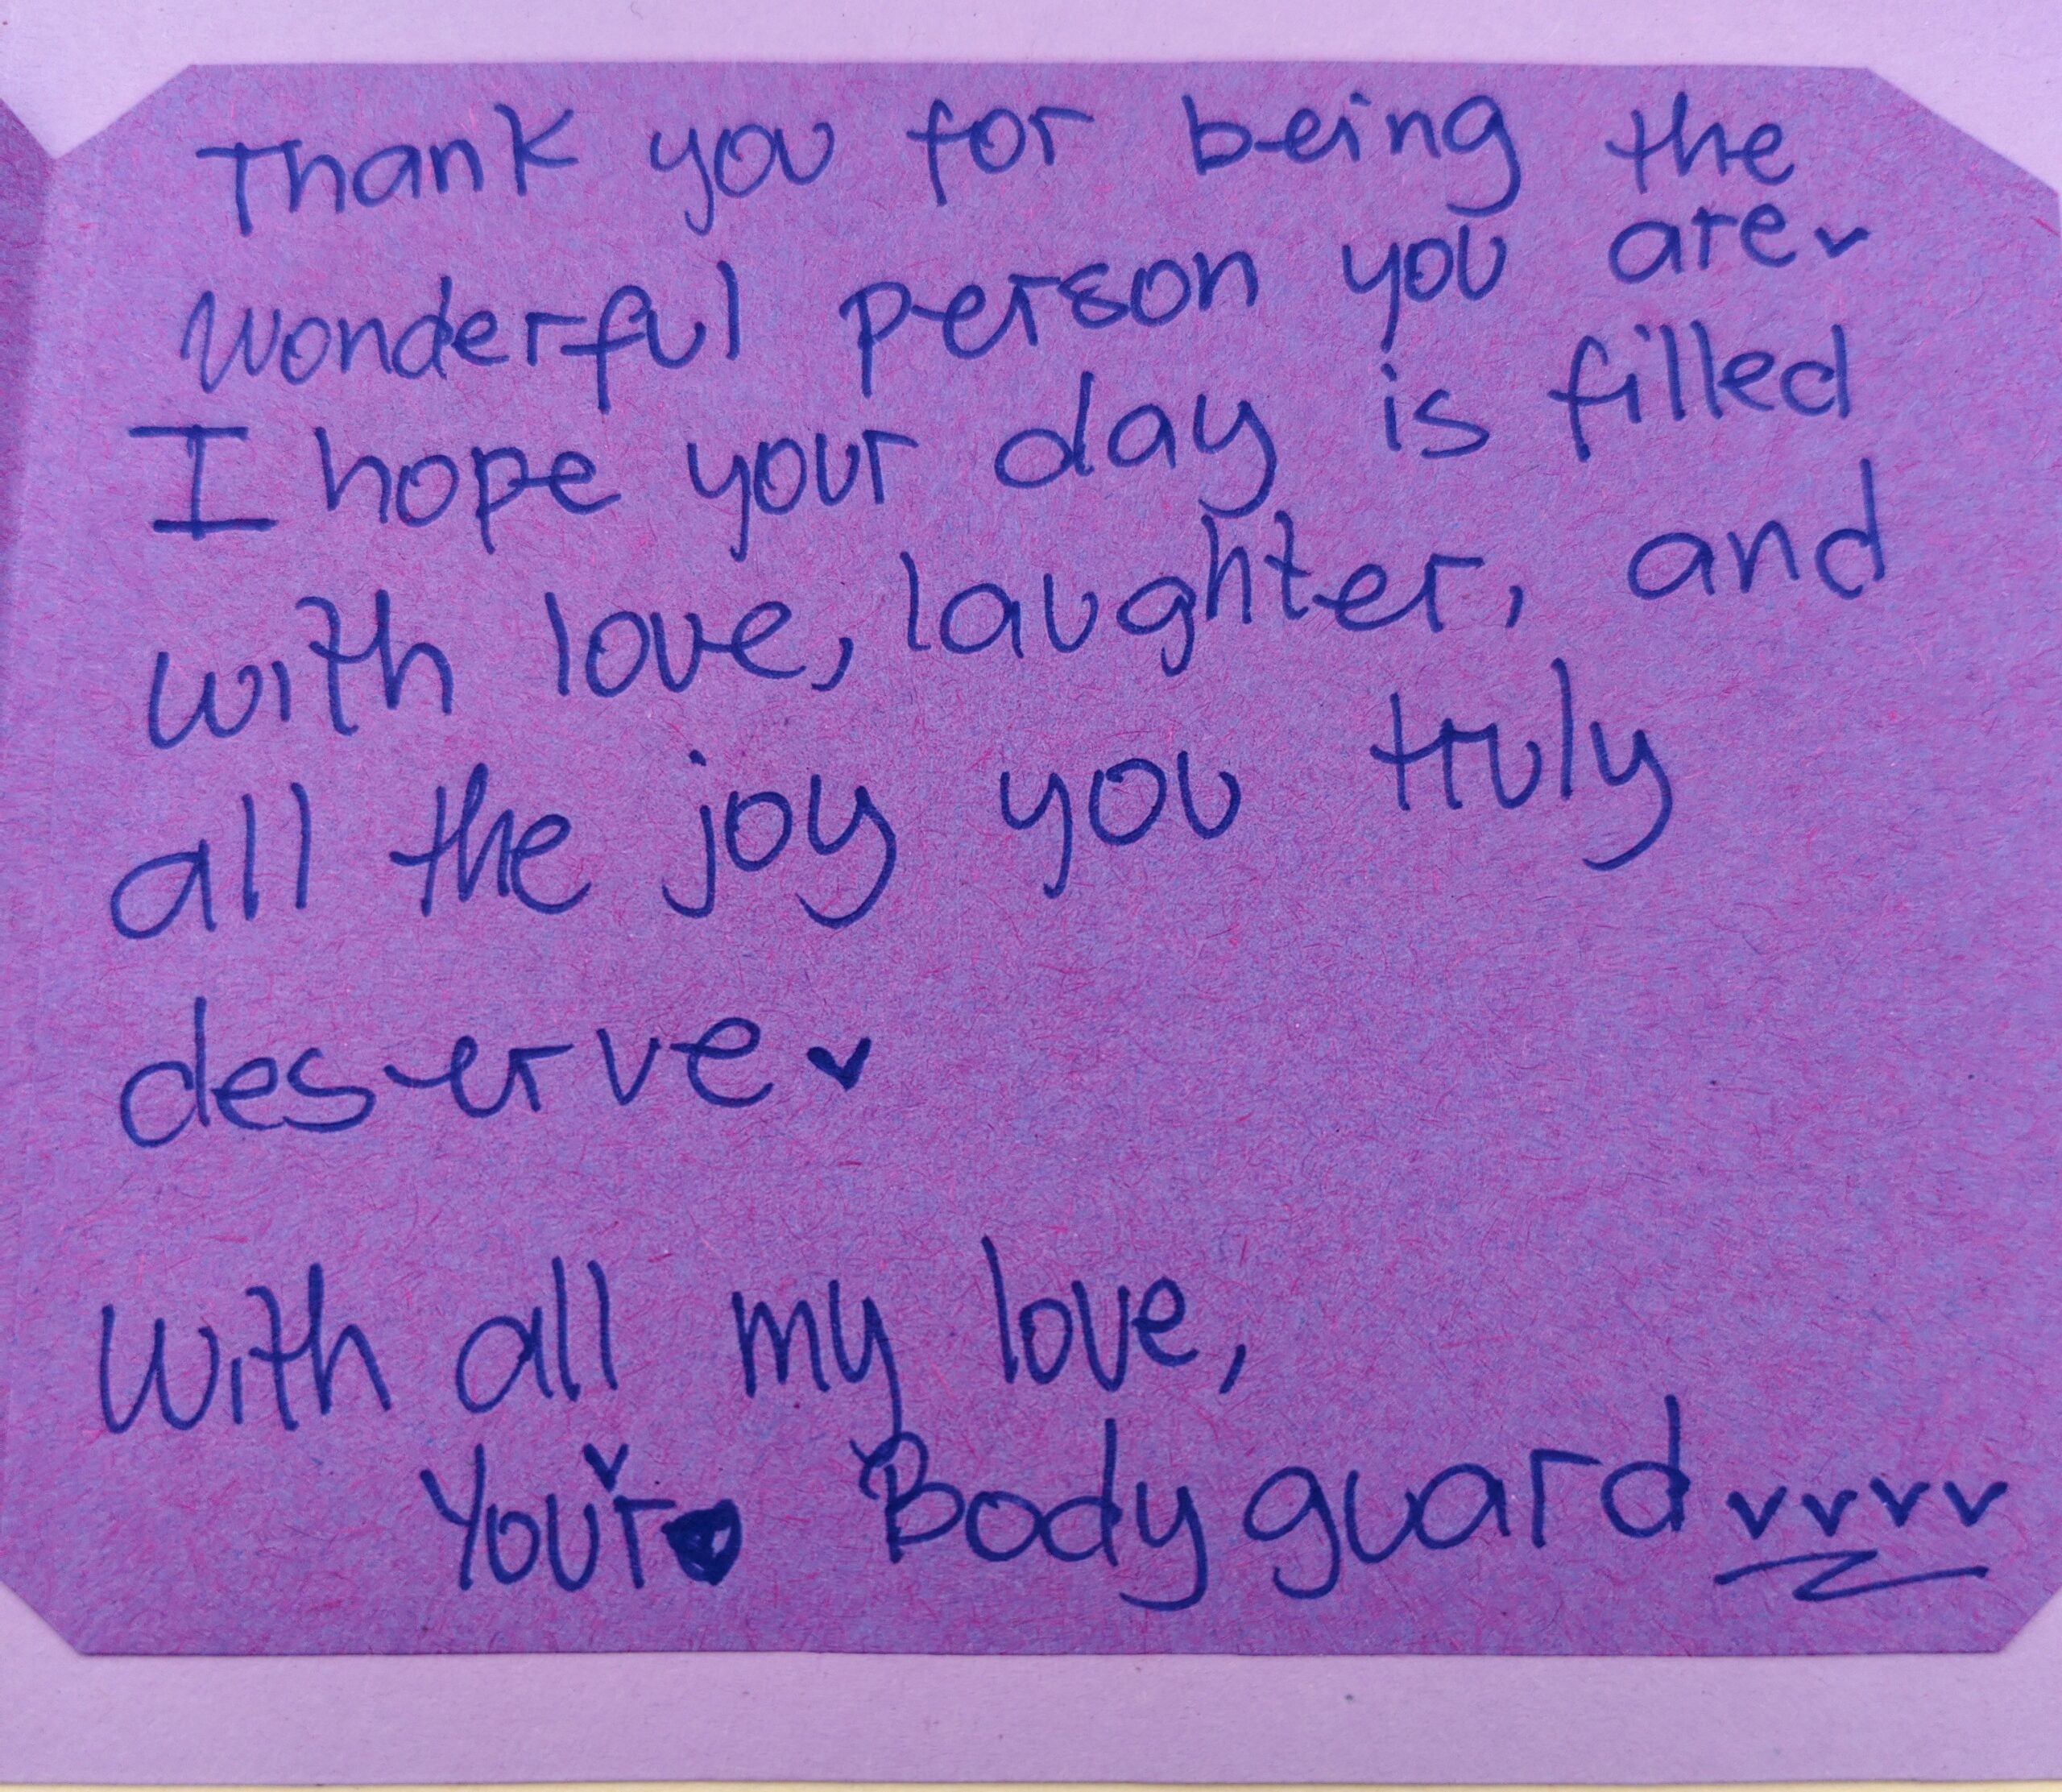 Thank you for being the
wonderful person you are♥
I hope your day is filled
with love, laughter, and
all the joy you truly
deserve♥
With all my love,
Your♥ Bodyguard♥♥♥♥